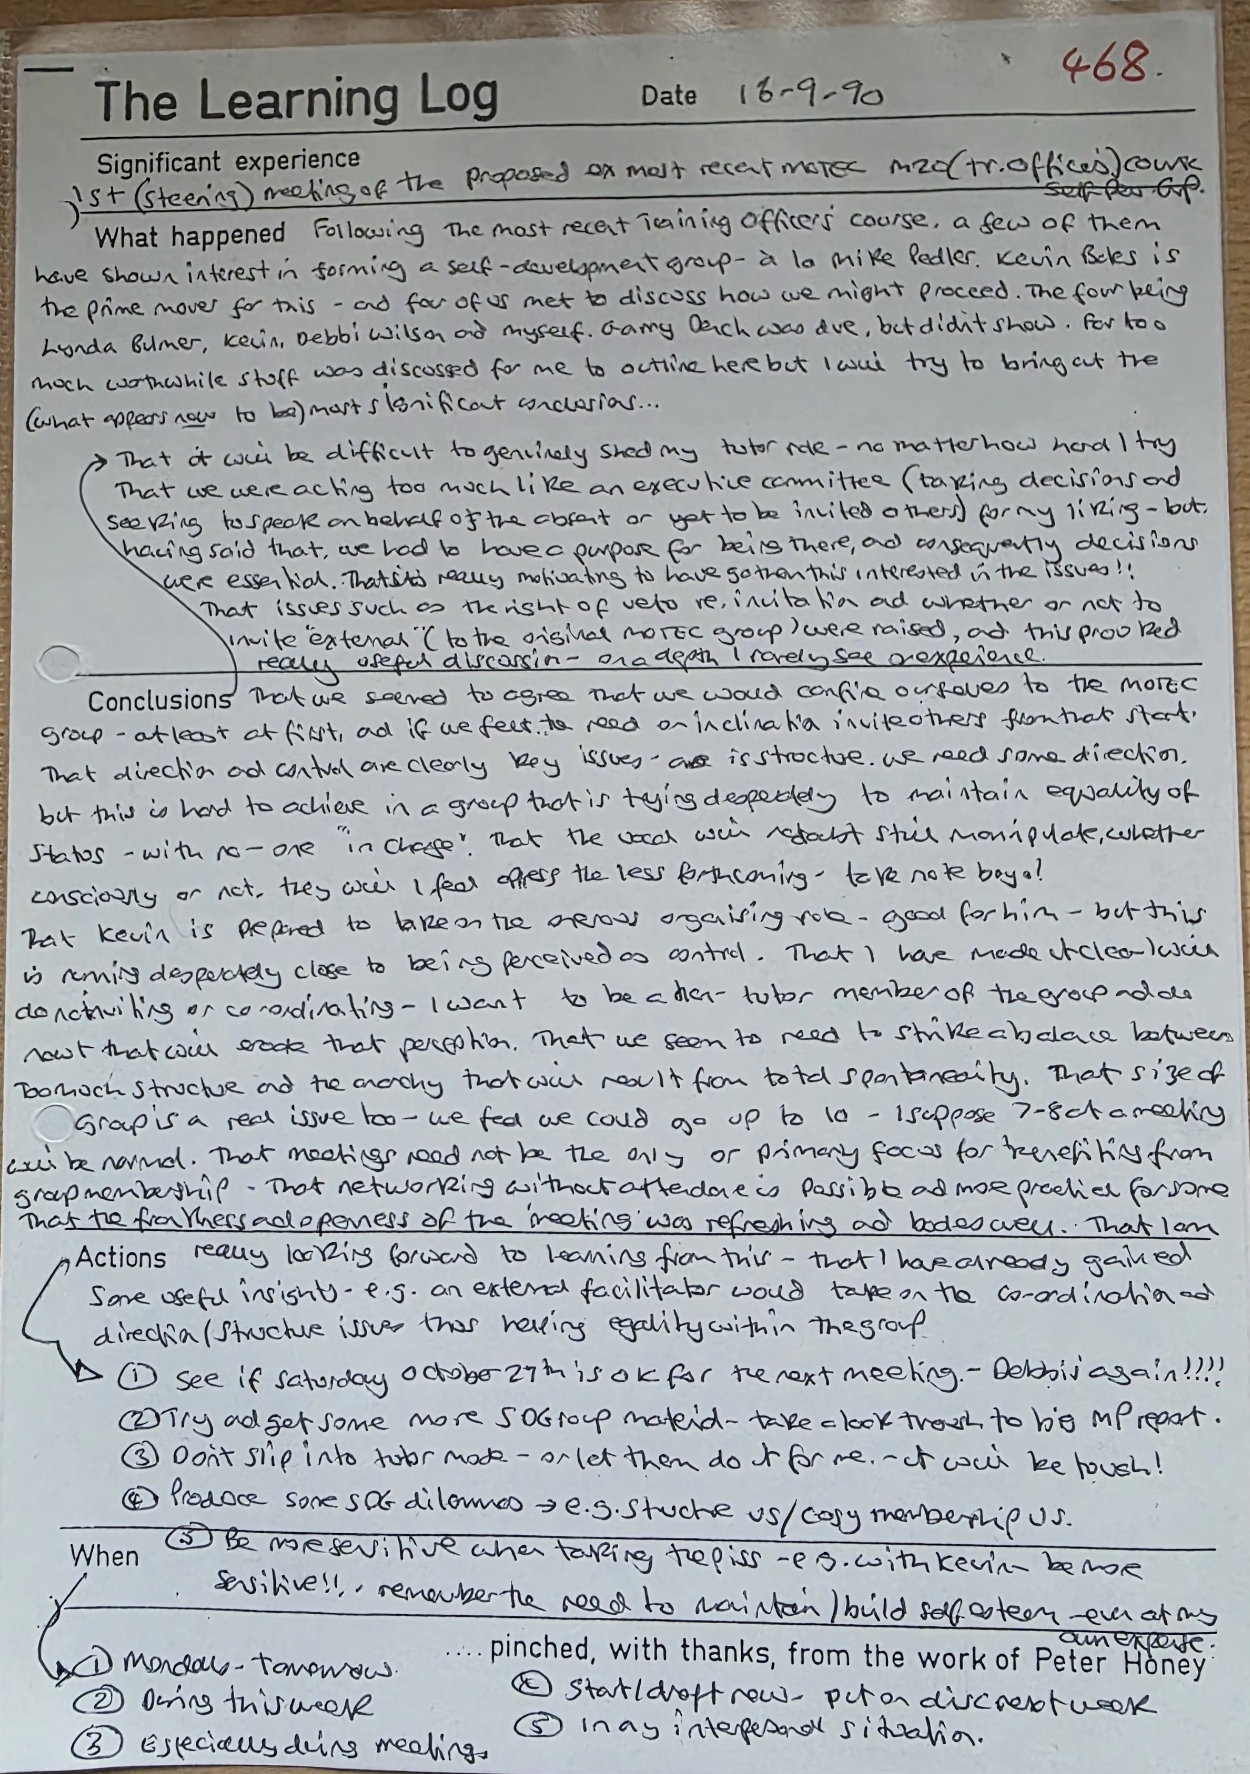 468.
The Learning Log Date 16-9-90
Significant experience
1st (steering) meeting of the proposed ex most recent MOTEC M20 (Tr. Officers) course
Self Dev Grp.
What happened Following the most recent Training Officers' course, a few of them
have shown interest in forming a self-development group - à la Mike Pedler. Kevin is
the prime mover for this - and four of us met to discuss how we might proceed. The four being
Lynda Bulmer, Kevin, Debbi Wilson and myself. was due, but didn't show. Far too
much worthwhile stuff was discussed for me to outline here but I will try to bring out the
(what appears now to be) most significant conclusions...
That it will be difficult to genuinely shed my tutor role - no matter how hard I try
That we were acting too much like an executive committee (taking decisions and
seeking to speak on behalf of the absent or yet to be invited others) for my liking - but,
having said that, we had to have a purpose for being there, and consequently decisions
were essential. That it's really motivating to have gotten this interested in the issues!!
That issues such as the right of veto re. invitation and whether or not to
invite "external" (to the original MOTEC group) were raised, and this provoked
really useful discussion - on a depth I rarely see or experience.
Conclusions That we seemed to agree that we would confine ourselves to the MOTEC
group - at least at first, and if we feel the need or inclination invite others from that start.
That direction and control are clearly key issues - as is structure. We need some direction,
but this is hard to achieve in a group that is trying desperately to maintain equality of
status - with no-one "in charge". That the vocal will no doubt still manipulate, whether
consciously or not, they will I feel the less forthcoming - take note boyo!
That Kevin is prepared to take on the onerous organising role - good for him - but this
is running desperately close to being perceived as control. That I have made it clear I will
do no inviting or co-ordinating - I want to be a non-tutor member of the group and do
nowt that will erode that perception. That we seem to need to strike a balance between
too much structure and the anarchy that will result from total spontaneity. That size of
group is a real issue too - we feel we could go up to 10 - I suppose 7-8 at a meeting
will be normal. That meetings need not be the only or primary focus for benefiting from
group membership - that networking without attendance is possible and more practical for some
That the frankness and openness of the 'meeting' was refreshing and bodes well. That I am
Actions really looking forward to learning from this - that I have already gained
some useful insights - e.g. an external facilitator would take on the co-ordination and
direction/structure issues thus helping egality within the group
① See if Saturday October 27th is OK for the next meeting. - Debbi's again!!!!
② Try and get some more SDGroup material - take a look through to big MP report.
③ Don't slip into tutor mode - or let them do it for me. - it will be tough!
④ Produce some SDG dilemmas → e.g. structure vs/ cosy membership vs.
⑤ Be more sensitive when taking the piss - e.g. with Kevin be more
When
sensitive!!. remember the need to maintain/build self esteem - even at my
own expense.
.... pinched, with thanks, from the work of Peter Honey
① Monday - tomorrow.
② During this week
③ Especially during meetings
④ Start/draft now - put on disc next week
⑤ In any interpersonal situation.